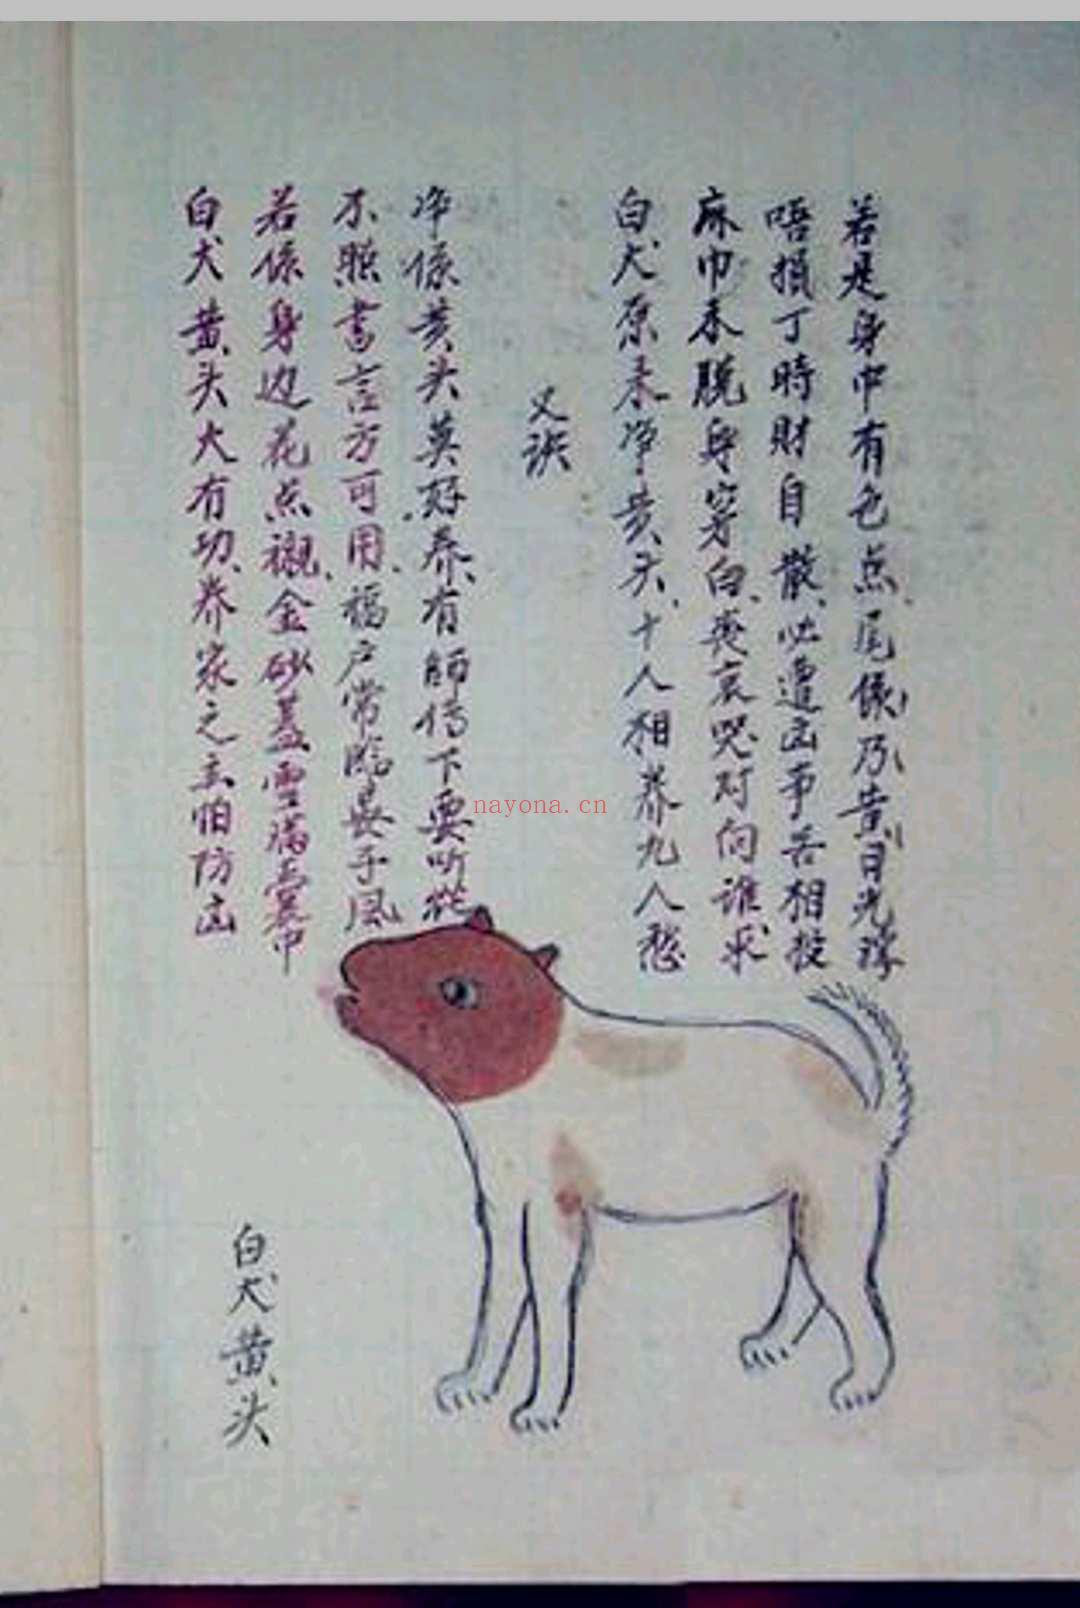 白犬黄头大有功、养家之主怕防凶
若係身边花点襯、金砂盖雪满堂中
不照書言方可用、福户常臨長子風
净係黄头莫好养、有師傳下要听從
又诀
白犬原来净黄头、十人相养九人愁
麻巾未脱身穿白、丧哀哭对向谁求
唔損丁時財自散、必遭凶事苦相投
若是身中有色点、尾係乃黄目光
白犬黄头
nayona.cn